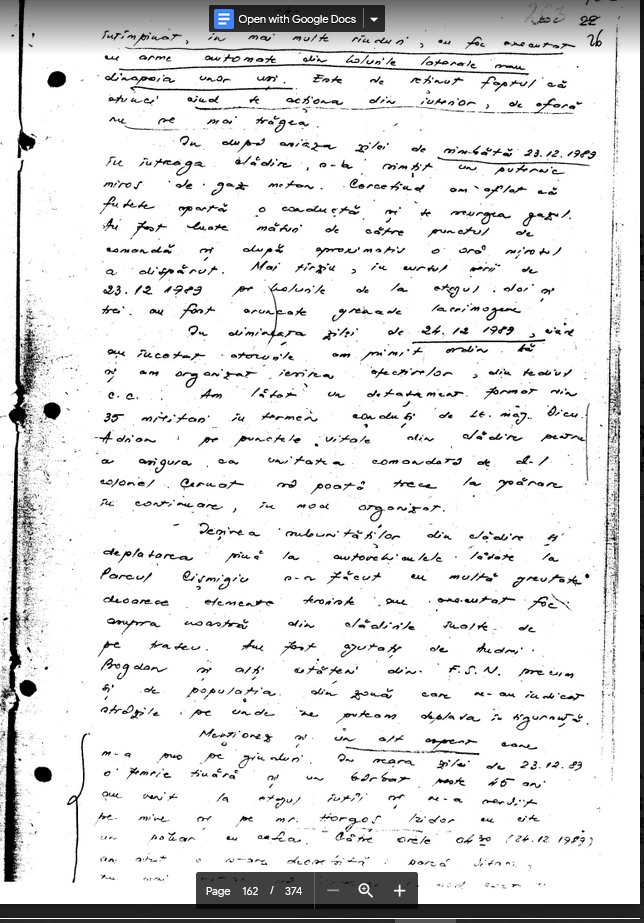 Open with Google Docs
263 22
26
întîmpinat, în mai multe rînduri, cu foc executat
cu arme automate din holurile laterale sau
dinapoia unor uși. Este de reținut faptul că
atunci cînd se acționa din interior, de afară
nu se mai trăgea.
În după amiaza zilei de sîmbătă 23.12.1989
în întreaga clădire, s-a simțit un puternic
miros de gaz metan. Cercetînd am aflat că
fusese spartă o conductă și se scurgea gazul.
Au fost luate măsuri de către punctul de
comandă și după aproximativ o oră mirosul
a dispărut. Mai tîrziu, în cursul serii de
23.12 1989 pe holurile de la etajul doi și
trei au fost aruncate grenade lacrimogene
În dimineața zilei de 24.12 1989, cînd
au încetat atacurile am primit ordin să
și am organizat ieșirea efectivelor, din sediul
C.C. Am lăsat un detașament format din
35 militari în termen conduși de Lt. maj. Dicu
Adrian pe punctele vitale din clădire pentru
a asigura ca unitatea comandată de d-l
colonel Cernat să poată trece la apărare
în continuare, în mod organizat.
Ieșirea subunităților din clădire și
deplasarea pînă la autovehiculele lăsate la
Parcul Cișmigiu s-a făcut cu multă greutate
deoarece elemente teroriste au executat foc
asupra noastră din clădirile înalte de
pe traseu. Am fost ajutați de studni.
Bogdan și alți cetățeni din F.S.N. precum
și de populația din zonă care ne-au indicat
străzile pe unde ne puteam deplasa în siguranță.
Menționez și un alt aspect care
m-a pus pe gînduri. În seara zilei de 23.12.89
o femeie tînără și un bărbat peste 45 ani
au venit la etajul întîi și ne-a servit
pe mine și pe mr. Horgoș Izidor cu cîte
un pahar cu cafea. Către orele 04 30 (24.12.1989)
am o stare deosebită :
nu mai în mod
Page 162 / 374